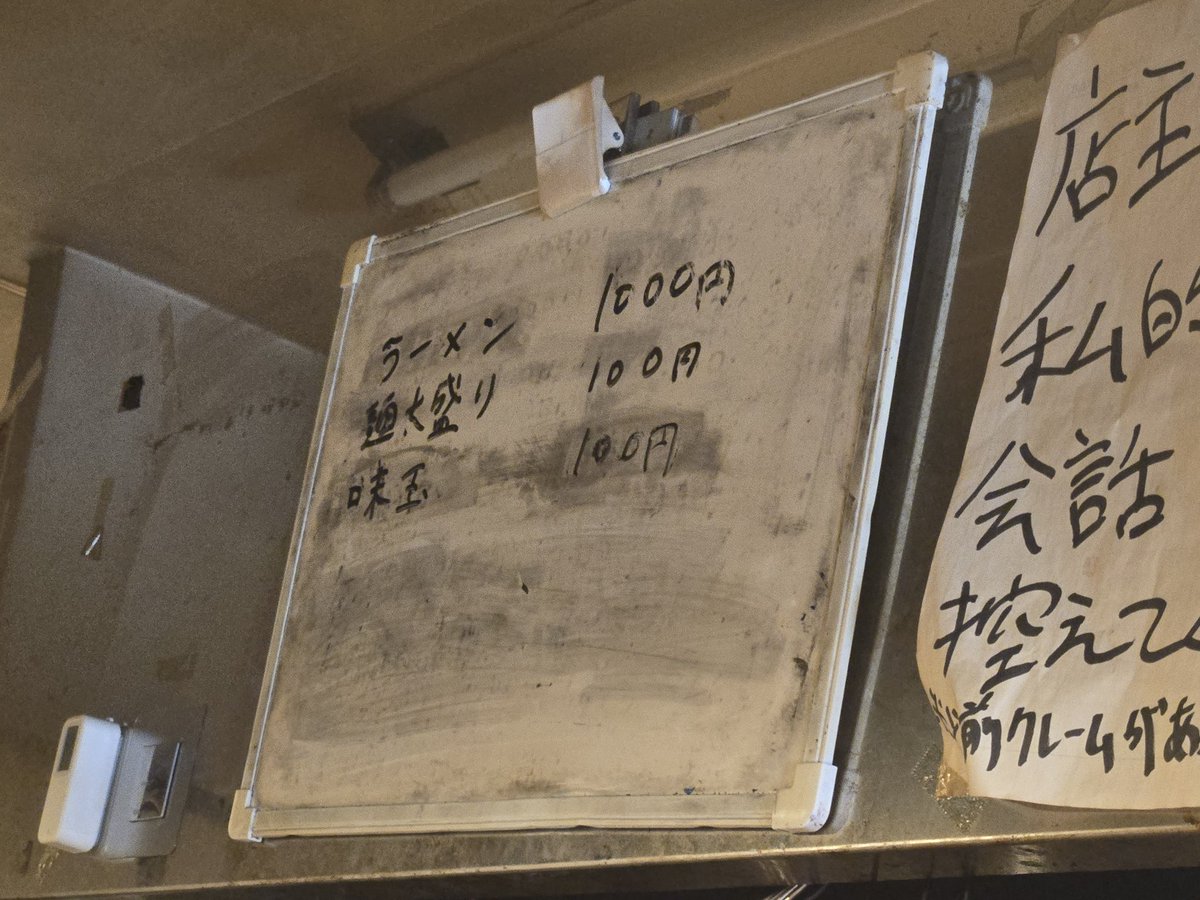 ラーメン 1000円
麺大盛り 100円
味玉 100円
店主
私的
会話
控えて
前クレームがあ